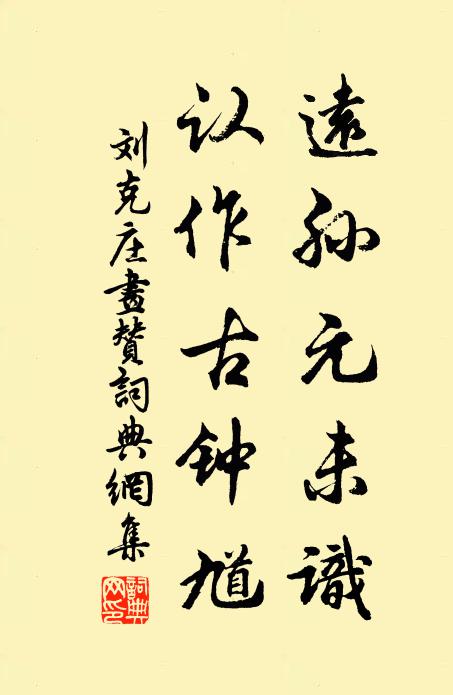 遠孙元未識
认作古钟馗
刘克庄畫贊詞典網集
詞典
网印